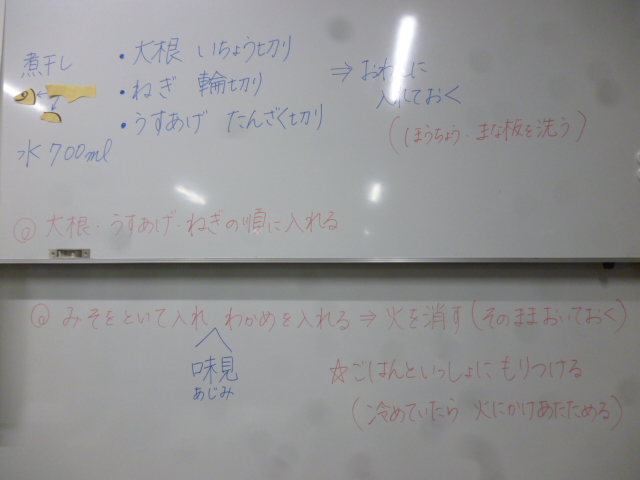 煮干し
・大根 いちょう切り
・ねぎ 輪切り
・うすあげ たんざく切り
水 700ml
⇒ おわんに
入れておく
(ほうちょう・まな板を洗う)
◎ 大根・うすあげ・ねぎの順に入れる
◎ みそをといて入れ わかめを入れる ⇒ 火を消す(そのままおいておく)
味見
あじみ
☆ごはんといっしょにもりつける
(冷めていたら 火にかけあたためる)